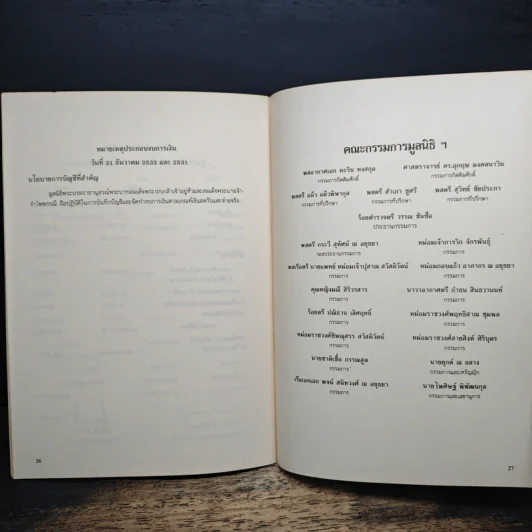 หมายเหตุประกอบงบการเงิน
วันที่ 31 ธันวาคม 2532 และ 2531
นโยบายการบัญชีที่สำคัญ
มูลนิธิพระบรมราชานุสรณ์พระบาทสมเด็จพระปกเกล้าเจ้าอยู่หัวและสมเด็จพระนางเจ้า
รำไพพรรณี ถือปฏิบัติในการบันทึกบัญชีและจัดทำงบการเงินตามเกณฑ์เงินสดรับและจ่ายจริง
26
คณะกรรมการมูลนิธิ ฯ
พลอากาศเอก ทะริน ทองสกุล ศาสตราจารย์ ดร.อุกฤษ มงคลนาวิน
กรรมการกิตติมศักดิ์ กรรมการกิตติมศักดิ์
พลตรี แม้ว แม้วพิษากุล พลตรี สำเภา ชูศรี พลตรี สุวิทย์ ชัยประภา
กรรมการที่ปรึกษา กรรมการที่ปรึกษา กรรมการที่ปรึกษา
ร้อยตำรวจตรี วรรณ ชันซื่อ
ประธานกรรมการ
พลตรี กระวี สุทัศน์ ณ อยุธยา หม่อมเจ้าการวิก จักรพันธุ์
รองประธานกรรมการ กรรมการ
พลเรือตรี นายแพทย์ หม่อมเจ้าปุสาณ สวัสดิวัตน์ หม่อมกอบแก้ว อาภากร ณ อยุธยา
กรรมการ กรรมการ
คุณหญิงมณี สิริวรสาร นาวาอากาศตรี กำธน สินธวานนท์
กรรมการ กรรมการ
ร้อยตรี ปณิธาน เลิศฤทธิ์ หม่อมราชวงศ์พฤทธิสาณ ชุมพล
กรรมการ กรรมการ
หม่อมราชวงศ์ชิษณุสรร สวัสดิวัตน์ หม่อมราชวงศ์สายสิงห์ ศิริบุตร
กรรมการ กรรมการ
นายชาติเชื้อ กรรณสูต นายฤกษ์ ณ ถลาง
กรรมการ กรรมการและเหรัญญิก
เรืออากาศเอก พจน์ สนิทวงศ์ ณ อยุธยา นายไพศิษฐ์ พิพัฒนกุล
กรรมการ กรรมการและเลขานุการ
27